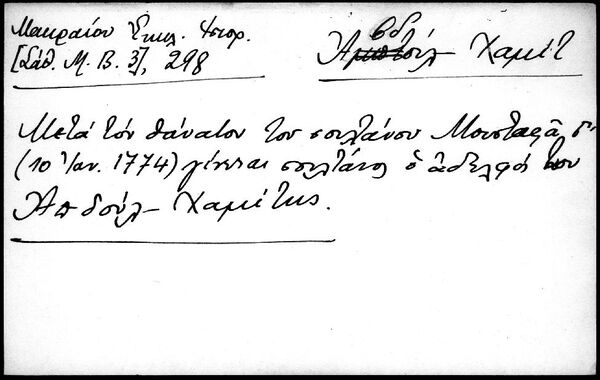 Μακραίου Ἐκκλ. Ἱστορ.
[Σάθ. Μ. Β. 3], 298
Ἀβδούλ Χαμίτ
Μετά τόν θάνατον τοῦ σουλτάνου Μουσταφᾶ Γ'
(10 Ἰαν. 1774) γίνεται σουλτάνος ὁ ἀδελφός του
Ἀπδούλ-Χαμίτης.